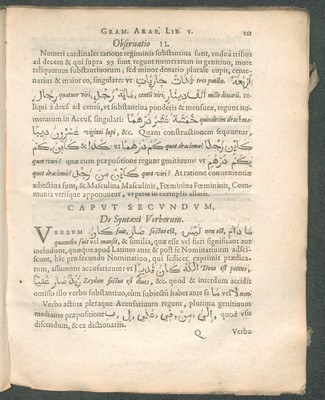 GRAM. ARAB. LIB. V. 121
Observatio II.
Numeri cardinales ratione regiminis substantiua sunt, vnde à tribus
ad decem & qui supra 99 sunt regunt numeratum in genitiuo, more
reliquorum substantiuorum; sed minor denario plurale cupit, cente-
narius & maior eo, singulare: vt ثلاث جاريات tres puellæ.
quatuor viri, مائة رجل centũ viri, الف دينار mille denarii. re-
liqui à decē ad centũ, vt substantiua ponderis & mensuræ, regunt nu-
meratum in Accus. singulari: خمسة عشر درهما quindecim drachmæ:
عشرون ديبا viginti lupi, &c. Quam constructionem sequuntur,
quot drachmæ?
quot viri? quæ cum præpositione regunt genitiuum: vt
quot drachmis? كاين من رجل quot viris? At ratione conuenientiæ
adiectiua sunt, & Masculina Masculinis, Fœminina Fœmininis, Com-
munia vtrisque apponuntur, vt patet in exemplis allatis.
CAPVT SECVNDVM,
De Syntaxi Verborum.
VERBVM كان fuit, صار factus est, ليس non est, ما دام
quamdiu fuit vel mansit, & similia, quæ esse vel fieri significant aut
includunt, quæque apud Latinos ante & post se Nominatiuum adscis-
cunt, hîc pro secundo Nominatiuo, qui scilicet exprimit prædica-
tum, assumunt accusatiuum: vt الله كان قديرا Deus est potens,
صار زيد غنيا Zeydon factus est diues, &c. quod & interdum accidit
omisso illo verbo substantiuo, cùm subiectũ habet ante se ما vel لا non.
Verba actiua pleraque Accusatiuum regunt, plurima genitiuum
mediante præpositione ب, ل, على, في, من, الى, quod vsu
discendum, & ex dictionariis.
Q Verba